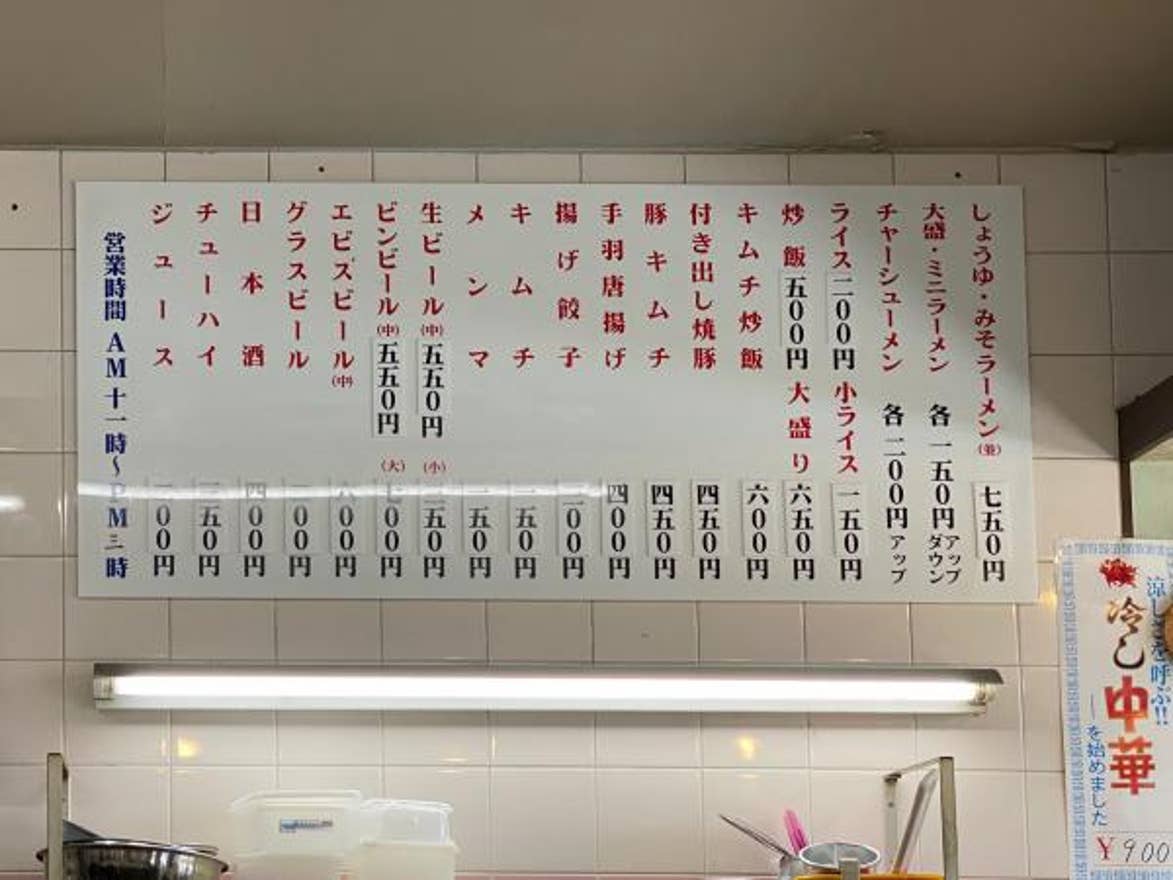 しょうゆ・みそラーメン(並) 七五〇円
大盛・ミニラーメン 各一五〇円アップダウン
チャーシューメン 各二〇〇円アップ
ライス二〇〇円 小ライス 一五〇円
炒飯五〇〇円 大盛り 六五〇円
キムチ炒飯 六〇〇円
付き出し焼豚 四五〇円
豚キムチ 四五〇円
手羽唐揚げ 四〇〇円
揚げ餃子 〇〇円
キムチ 一五〇円
メンマ 一五〇円
生ビール(中)五五〇円 (小) 五〇円
ビンビール(中)五五〇円 (大) 七〇〇円
エビスビール(中) 六〇〇円
グラスビール 〇〇円
日本酒 四〇〇円
チューハイ 三五〇円
ジュース 〇〇円
営業時間 AM十一時～PM三時
涼しさを呼ぶ!!
冷し中華
を始めました
¥900